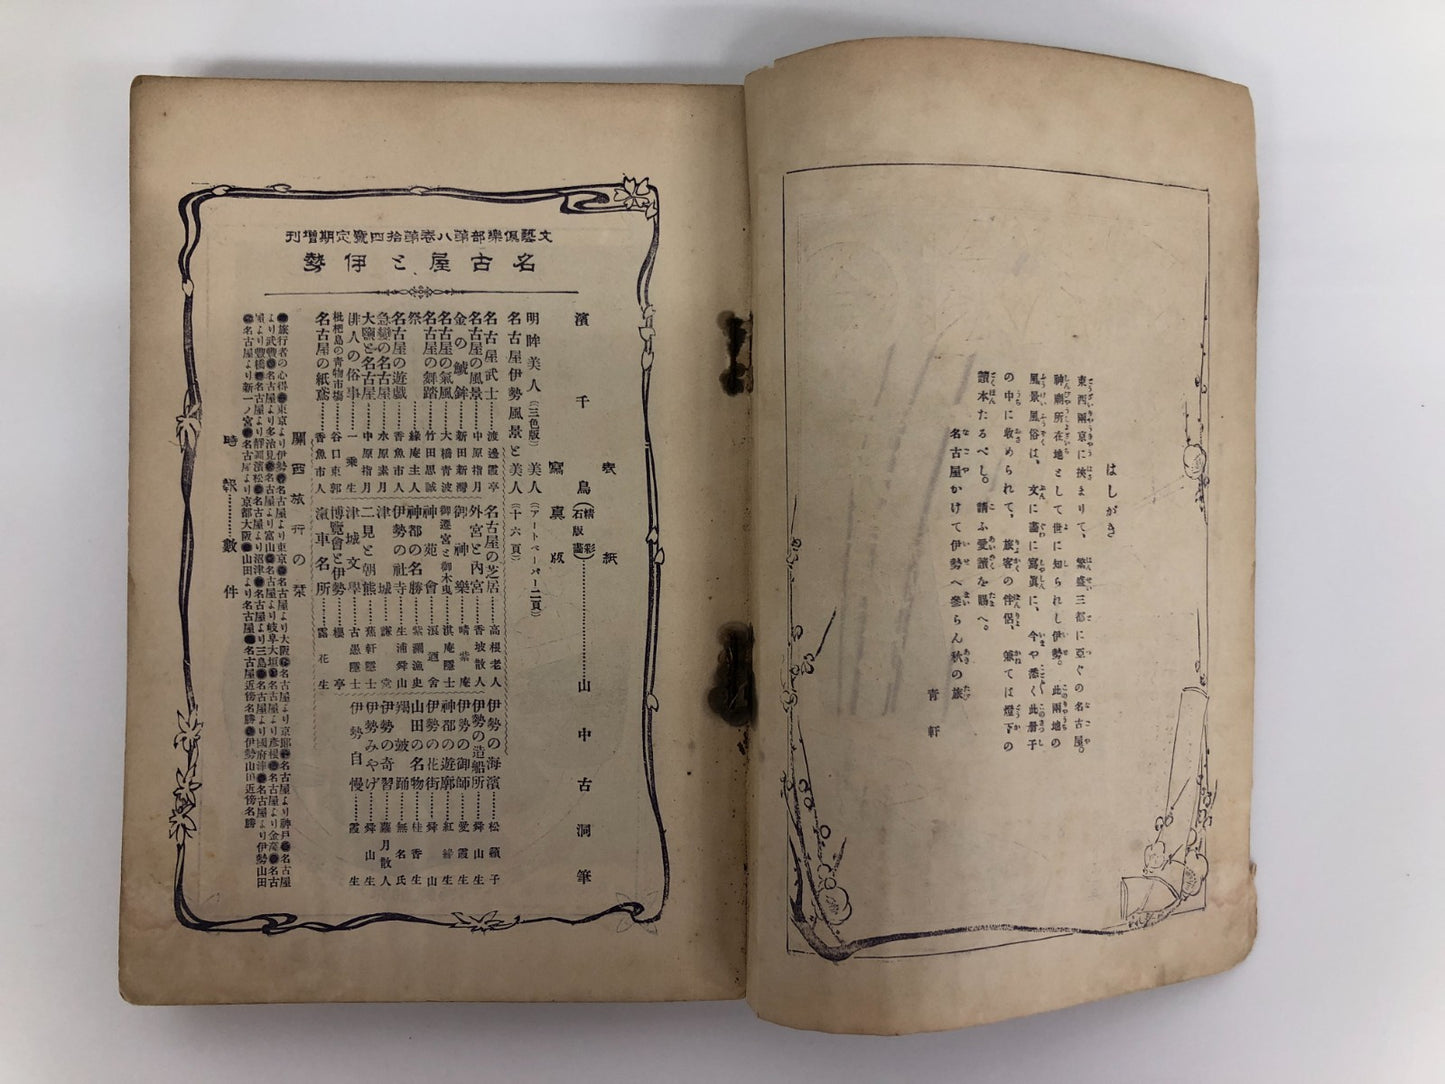 はしがき
東西兩京に挾まりて、繁盛三都に亞ぐの名古屋。
神廟所在地として世に知られし伊勢。此兩地の
風景風俗は、文に畵に寫眞に、今や悉く此册子
の中に收められて、旅客の伴侶、兼ては燈下の
讀本たるべし。請ふ愛讀を賜へ。
名古屋かけて伊勢へ參らん秋の旅
青軒
文藝倶樂部第八卷第拾四號定期增刊
名古屋と伊勢
表紙
濱千鳥(精彩石版畵)………山中古洞筆
寫眞版
明眸美人(三色版) 美人(アートペーパー二頁)
名古屋伊勢風景と美人(十六頁)
名古屋武士……渡邊霞亭
名古屋の風景……中原指月
金の鯱鉾……新田新灣
名古屋の氣風……大橋青波
名古屋の舞踏……竹田思誠
祭……綠庵主人
名古屋の遊戯……香魚市人
急變の名古屋……水原素月
大鹽と名古屋……中原指月
俳人の俗事……一乘生
枇杷島の青物市場……谷口東郭
名古屋の紙鳶……香魚市人
名古屋の芝居……高根老人
外宮と内宮……香坡散人
御神樂……晴紫庵
御遷宮と御木曳……淇庵隱士
神苑會……浪迺舍
神都の名勝……紫瀾漁史
伊勢の社寺……生浦舜山
津城……謙堂
二見と朝熊……蕉軒隱士
津城文學……古愚隱士
博覽會と伊勢……櫻亭
滊車名所……露花生
伊勢の海濱……松籟子
伊勢の造船所……舜山生
伊勢の御師……愛霞生
神都の遊廓……紅生
伊勢の花街……舜山
山田の名物……桂香生
踊……無名氏
伊勢の奇習……蘿月散人
伊勢みやげ……舜山生
伊勢自慢……霞生
關西旅行の栞
●旅行者の心得●東京より伊勢●名古屋より東京●名古屋より大阪●名古屋より京都●名古屋より神戸●名古屋
より武豊●名古屋より多治見●名古屋より富山●名古屋より岐阜大垣●名古屋より彦根●名古屋より金澤●名古
屋より豐橋●名古屋より靜岡濱松●名古屋より沼津●名古屋より三島●名古屋より國府津●名古屋より伊勢山田
●名古屋より新一ノ宮●名古屋より京都大阪●山田より名古屋●名古屋近傍名勝●伊勢山田近傍名勝
時報……數件